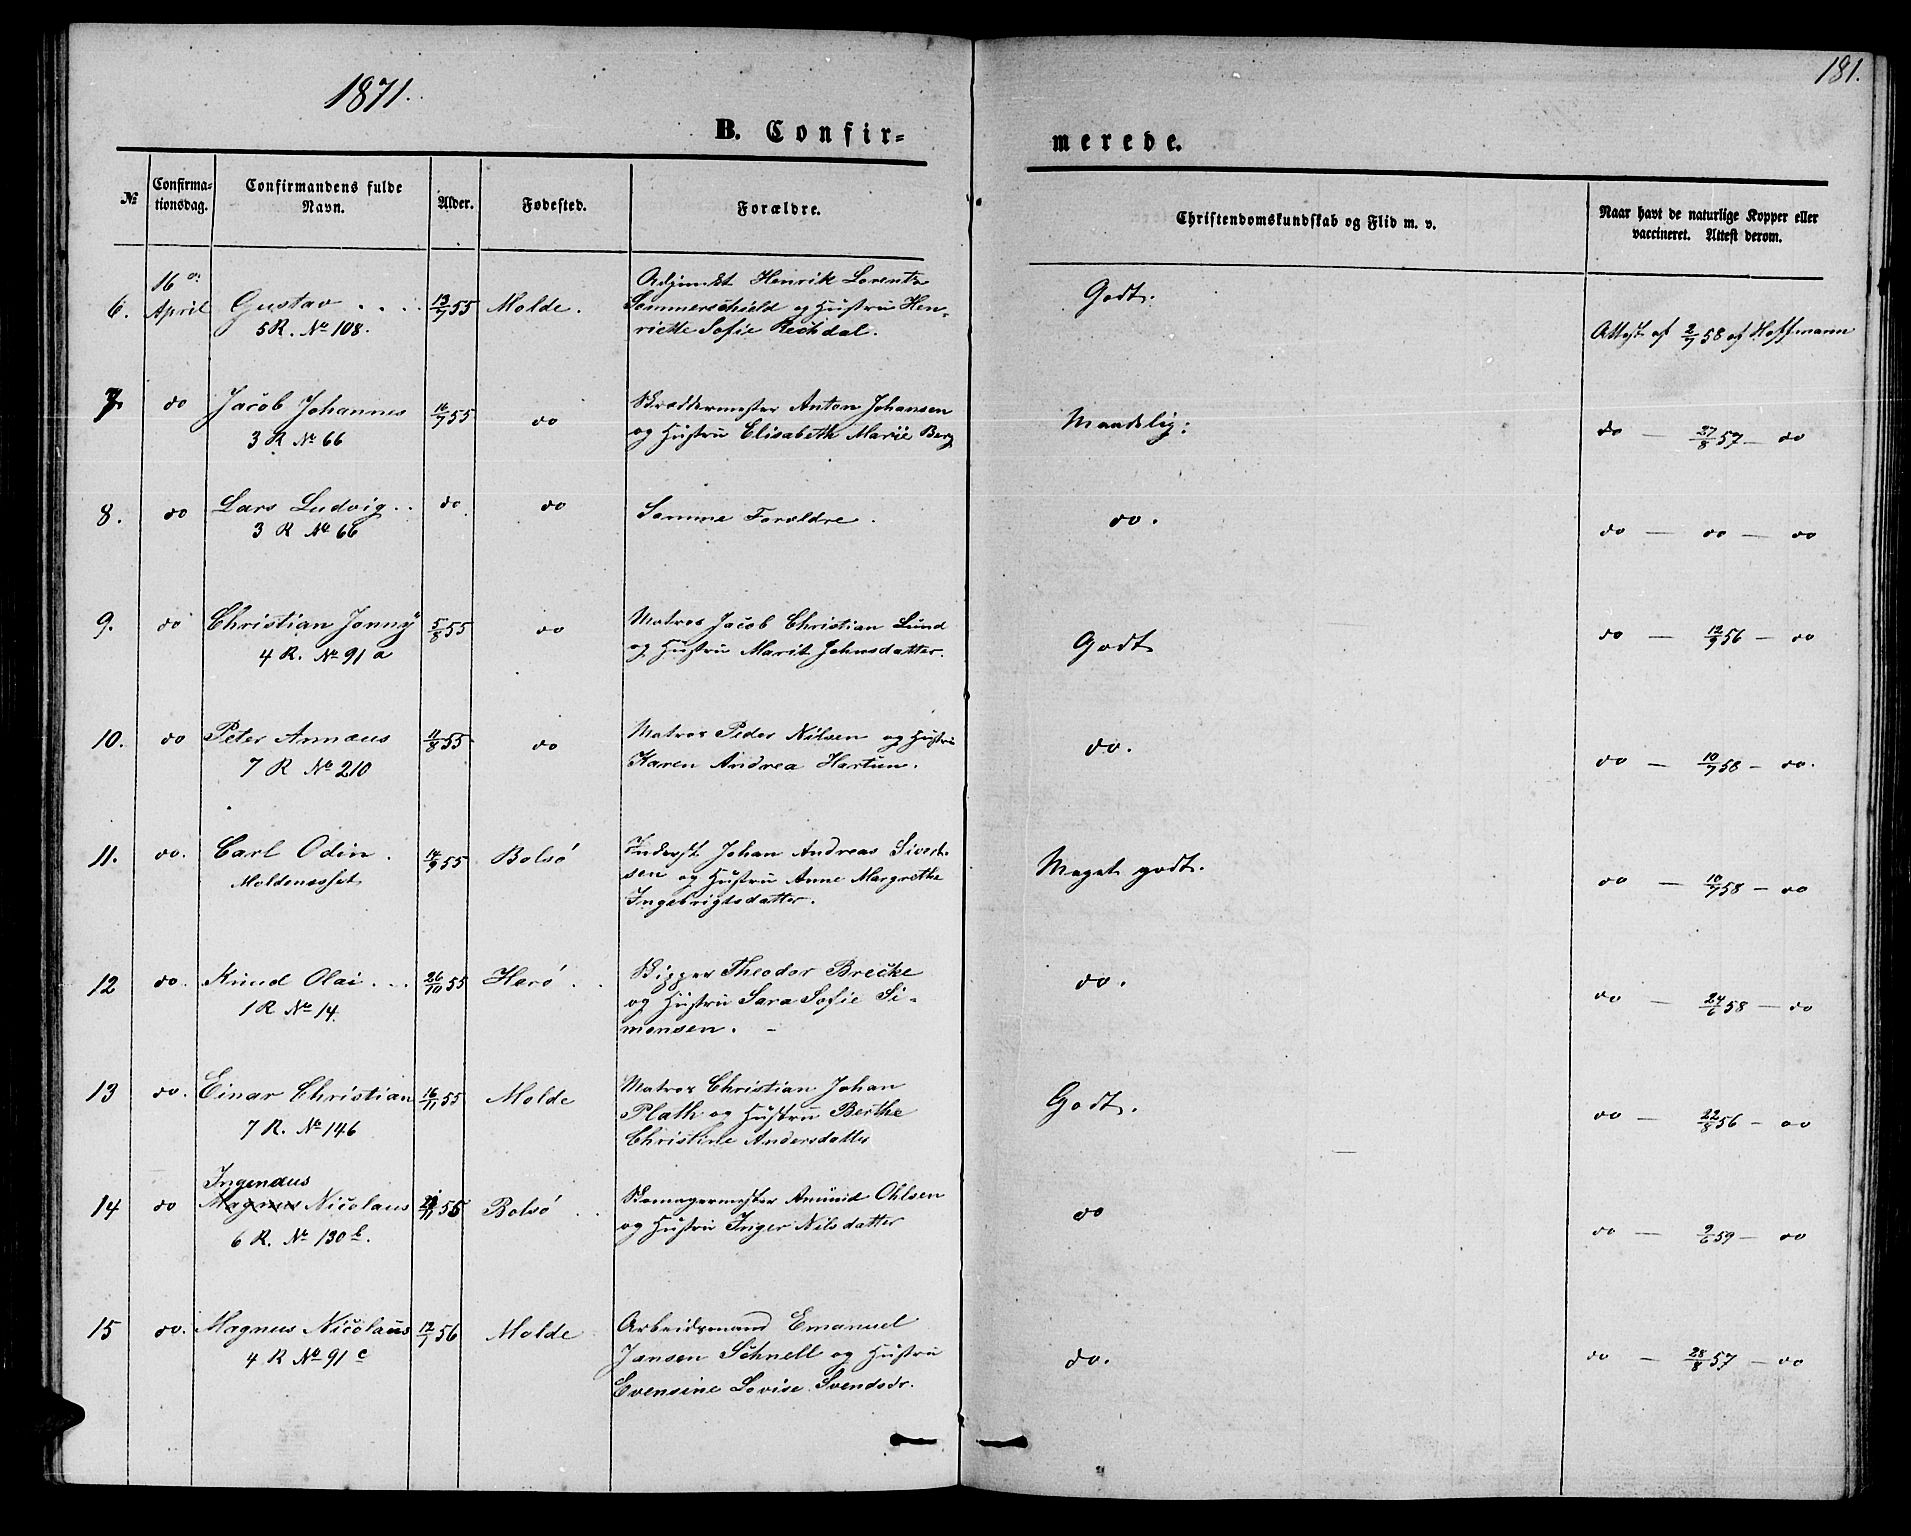 1871.
181.
B. Confir=
merede.
№
Confirma-
tionsdag.
Confirmandens fulde
Navn.
Alder.
Fødested.
Forældre.
Christendomskundskab og Flid m. v.
Naar havt de naturlige Kopper eller
vaccineret. Attest derom.
6. 16de April Gustav . . . . 13/7 55 Molde.
5 R. No 108.
Adjunkt Henrik Lorentz
Sommerschield og Hustru Hen-
riette Sofie Rechdal.
Godt.
Attest af 2/7 58 af Hoffmann
7. do Jacob Johannes 16/7 55 do
3 R No 66
Skræddermester Anton Johansen
og Hustru Elisabeth Marie Berg
Maadelig:
do — 27/8 57 — do
8. do Lars Ludvig . . do do
3 R No 66
Samme Forældre.
do.
do — do — do
9. do Christian Jonny 5/8 55 do
4 R. No 91 a
Matros Jacob Christian Lund
og Hustru Marit Johnsdatter.
Godt
do — 12/9 56 — do
10. do Peter Annæus 11/8 55 do
7 R No 210
Matros Peder Nilsen og Hustru
Karen Andrea Hartun.
do.
do — 10/7 58 — do.
11. do. Carl Odin. 14/9 55 Bolsø
Moldensæt
Inderst Johan Andreas Sivert-
sen og Hustru Anne Margrethe
Ingebrigtsdatter.
Meget godt.
do — 10/7 58 — do
12 do. Knud Olai . . . 26/10 55 Herø . .
1 R No 14.
Skipper Theodor Brecke
og Hustru Sara Sofie Si-
monsen. -
do.
do — 24/6 58 — do
13 do. Einar Christian 16/11 55 Molde
7 R. No 146
Matros Christian Johan
Plath og Hustru Berthe
Christine Andersdatter
Godt.
do — 22/8 56 — do
Ingendus
14 do Magnus Nicolaus /11 55 Bolsø . .
6 R. No 130 b.
Skomagermester Amund Ohlsen
og Hustru Inger Nilsdatter
do
do — 9/6 59 — do
15 do. Magnus Nicolaus 12/1 56 Molde
4 R No 91 c
Arbeidsmand Emanuel
Jansen Schnell og Hustru
Evensine Lovise Svendsdr.
do.
do — 28/8 57 — do